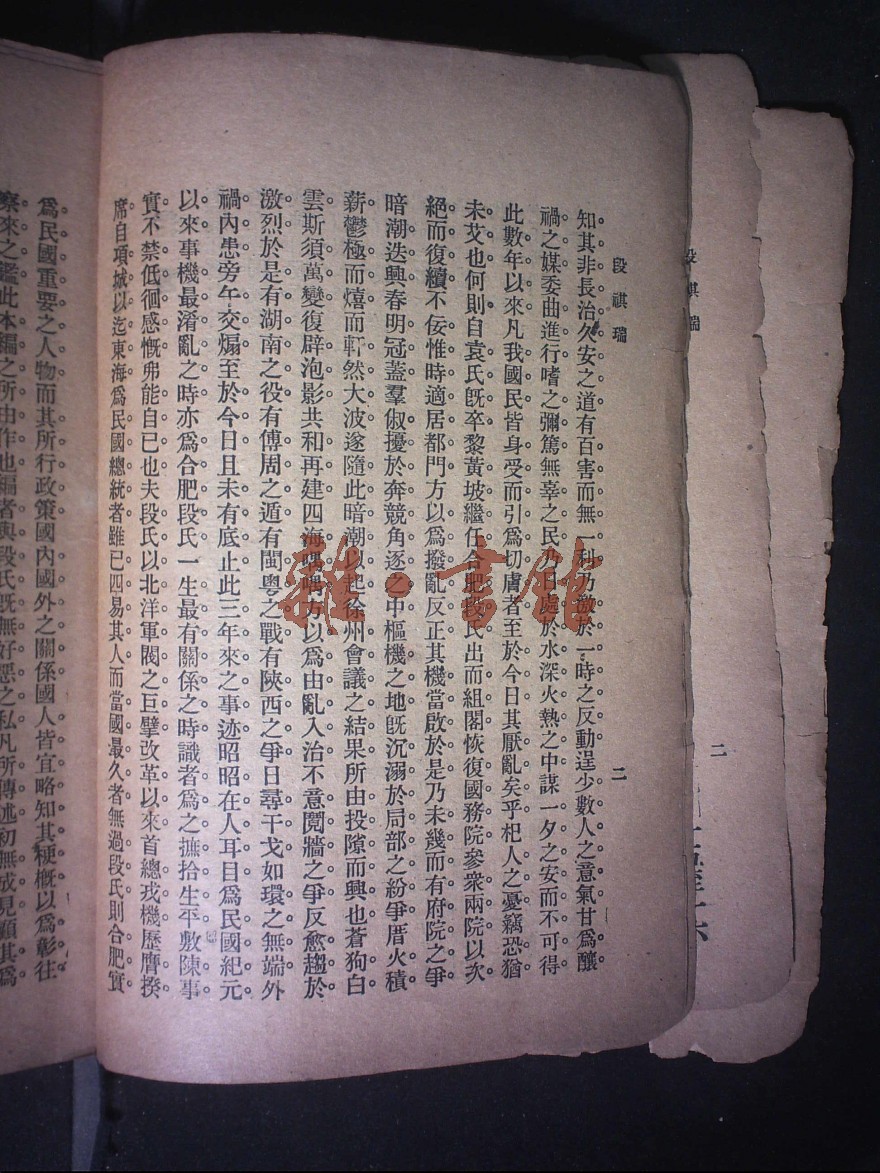 段祺瑞
二
知其非長治久安之道有百害而無一利乃激於一時之反動逞少數人之意氣甘爲釀
禍之媒委曲進行嗜之彌篤無辜之民乃日處於水深火熱之中謀一夕之安而不可得
此數年以來凡我國民皆身受而引爲切膚者至於今日其厭亂矣乎杞人之憂竊恐猶
未艾也何則自袁氏旣卒黎黃坡繼任合肥段氏出而組閣恢復國務院參衆兩院以次
絕而復續不佞惟時適居都門方以爲撥亂反正其機當啟於是乃未幾而有府院之爭
暗潮迭興春明冠蓋羣俶擾於奔競角逐之中樞機之地旣沉溺於局部之紛爭厝火積
薪鬱極而熺而軒然大波遂隨此暗潮以起徐州會議之結果所由投隙而興也蒼狗白
雲斯須萬變復辟泡影共和再建四海喁喁方以爲由亂入治不意鬩牆之爭反愈趨於
激烈於是有湖南之役有傅周之遁有閩粵之戰有陝西之爭日尋干戈如環之無端外
禍內患旁午交煽至於今日且未有底止此三年來之事迹昭昭在人耳目爲民國紀元
以來事機最淆亂之時亦爲合肥段氏一生最有關係之時識者爲之摭拾生平敷陳事
實不禁低徊感慨弗能自已也夫段氏以北洋軍閥之巨擘改革以來首總戎機歷膺揆
席自項城以迄東海爲民國總統者雖已四易其人而當國最久者無過段氏則合肥實
爲民國重要之人物而其所行政策國內國外之關係國人皆宜略知其梗概以爲彰往
察來之鑑此本編之所由作也編者與段氏旣無好惡之私凡所傳述初無成見顧其爲
段祺瑞
二
雜·書館